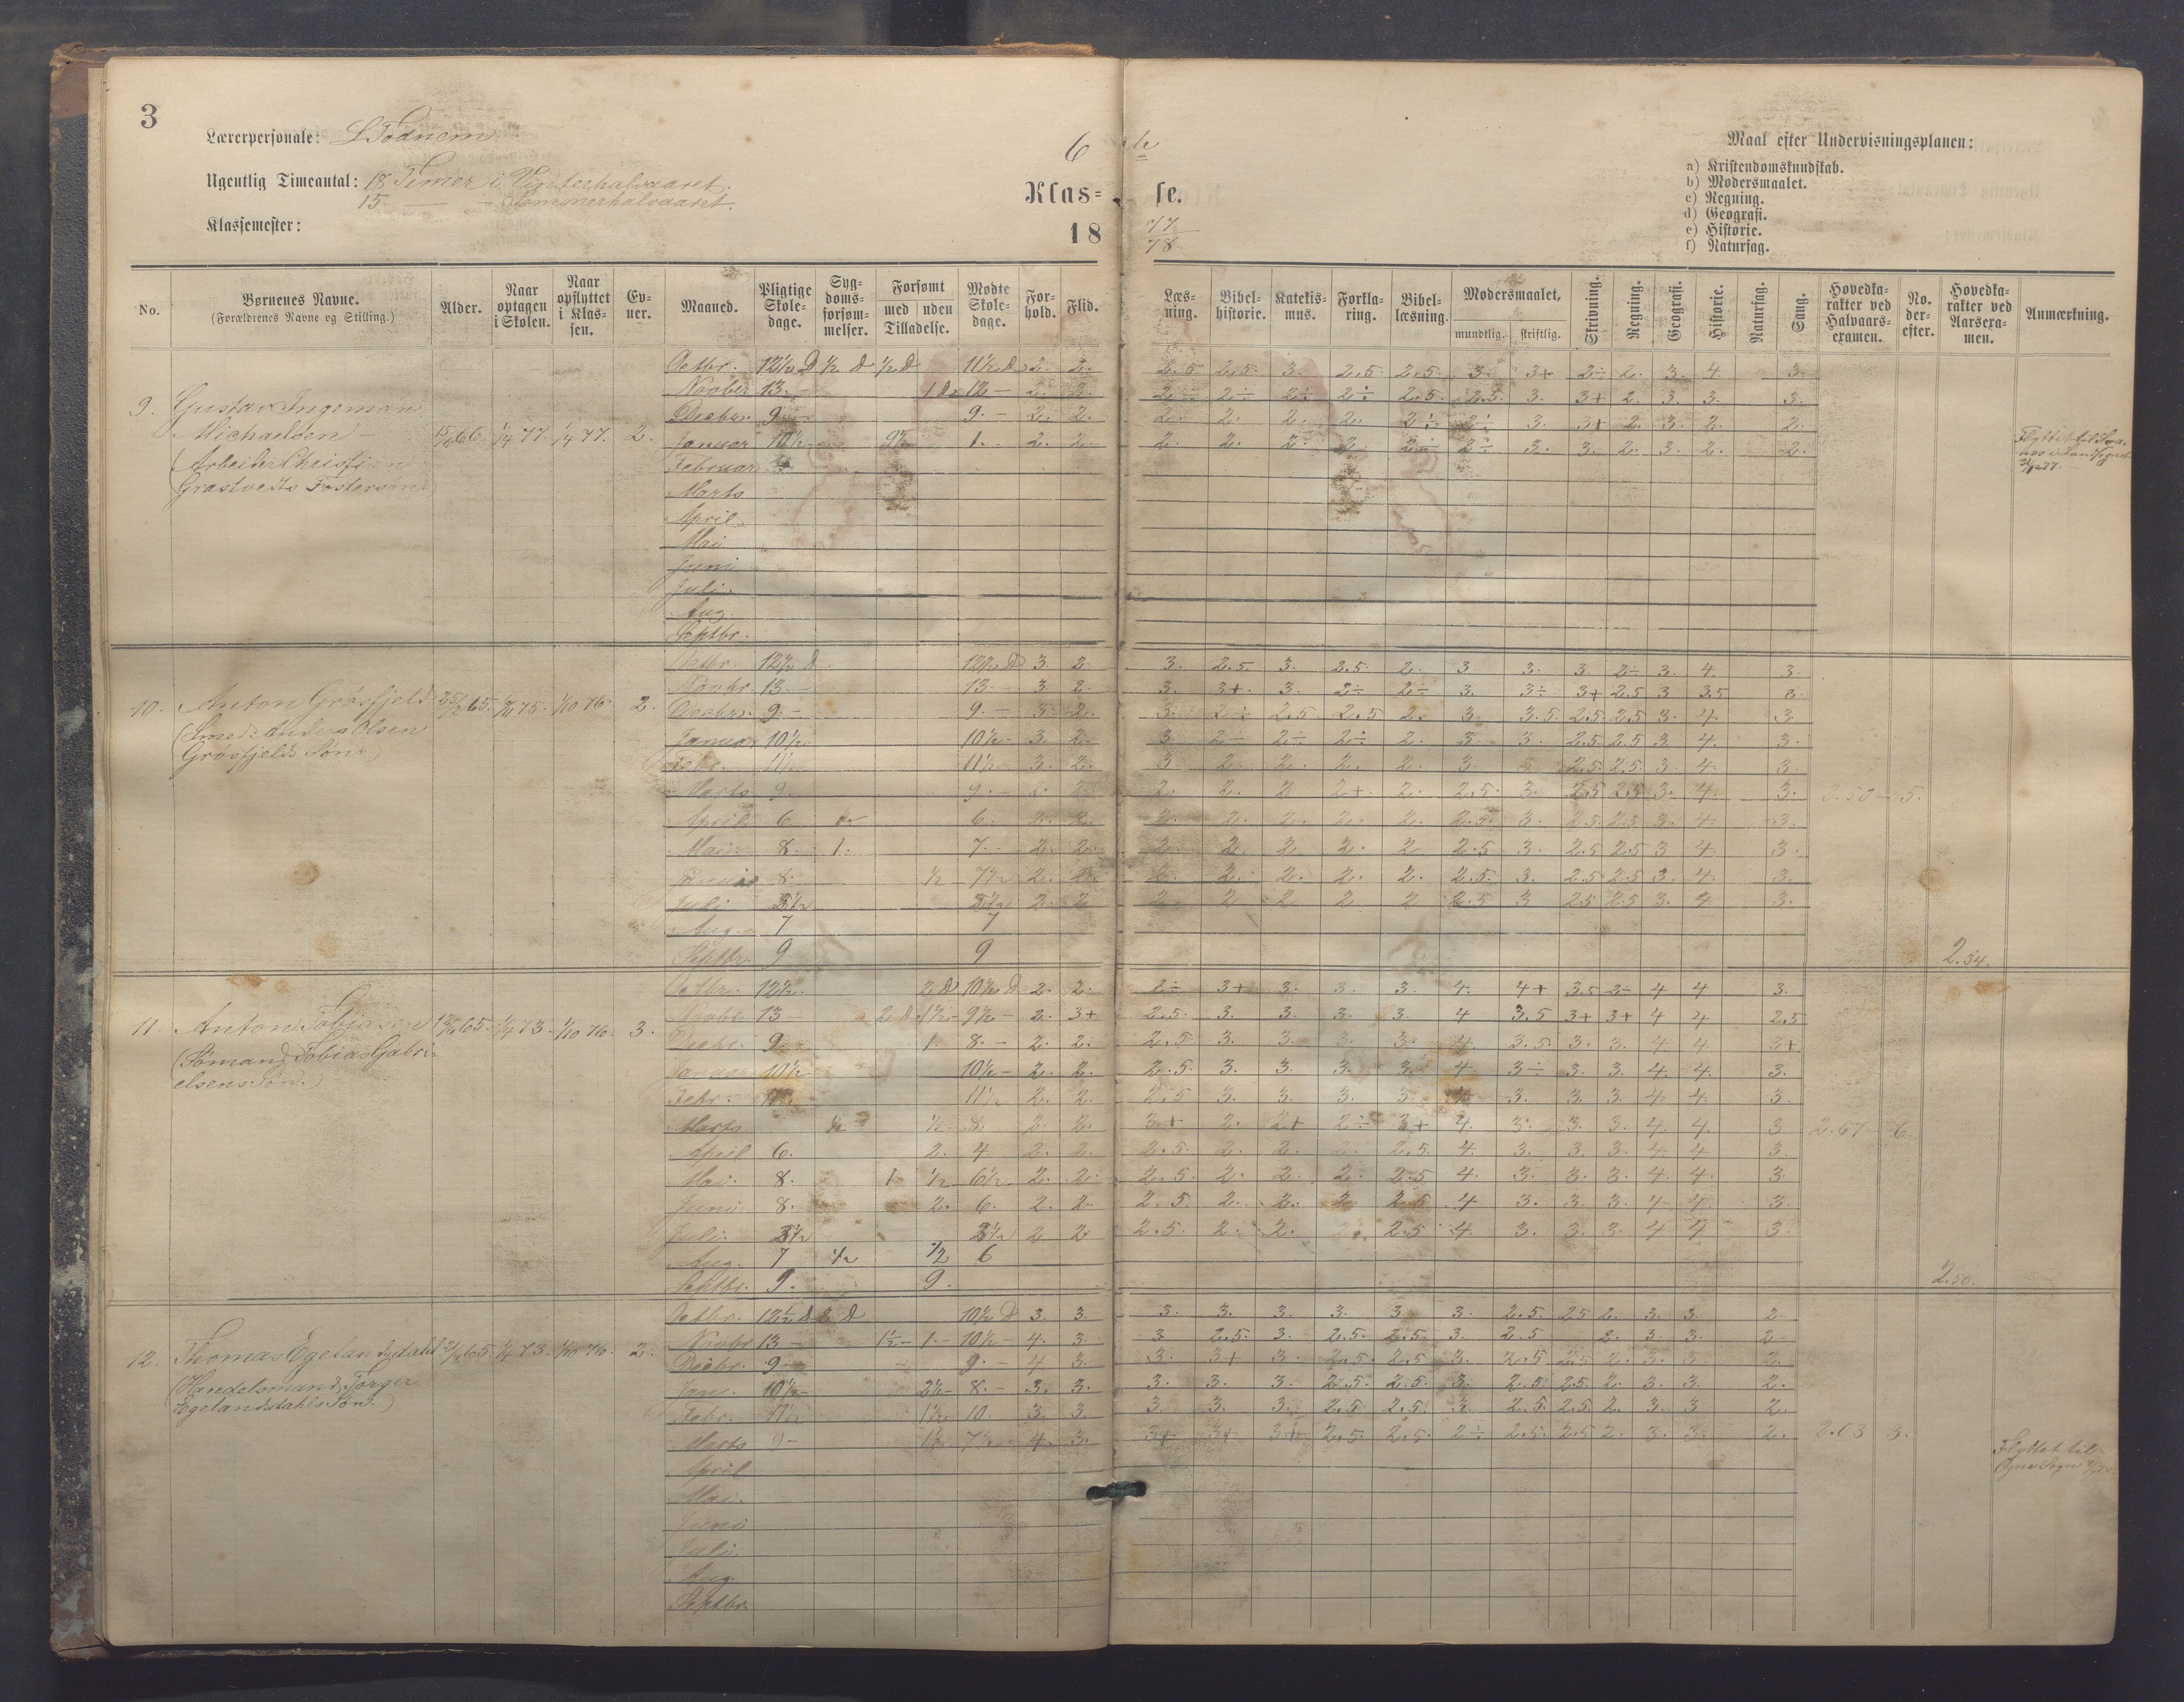 3
Lærerpersonale: L Todnem
Ugentlig Timeantal: 18 Timer i Vinterhalvaaret.
15 — - Sommerhalvaaret.
Klassemester:
6 te
Klas= se.
18 77/78
Maal efter Undervisningsplanen:
a) Kristendomskundskab.
b) Modersmaalet.
c) Regning.
d) Geografi.
e) Historie.
f) Naturfag.
No. Børnenes Navne. (Forældrenes Navne og Stilling.) Alder. Naar optagen i Skolen. Naar opflyttet i Klassen. Evner. Maaned. Pligtige Skoledage. Sygdomsforsømmelser. Forsømt med uden Tilladelse. Mødte Skoledage. Forhold. Flid. Læsning. Bibelhistorie. Katekismus. Forklaring. Bibellæsning. Modersmaalet, mundtlig. skriftlig. Skrivning. Regning. Geografi. Historie. Naturfag. Sang. Hovedkarakter ved Halvaarsexamen. No. derefter. Hovedkarakter ved Aarsexamen. Anmærkning.
9. Gustav Ingeman
Michaelsen —
(Arbeider Christian
Grastvedts Fostersøn.)
1/4 77. 1/4 77. 2.
Octbr. 12 1/2 D 1/2 d 1/2 D 11 1/2 D 2. 2. 2.5 2.5. 3. 2.5. 2.5 3. 3+ 2÷ 2. 3. 4. 3.
Novber 13. - 1 D. 12 - 2. 2. 2÷ 2÷ 2÷ 2÷ 2.5 2.5. 3. 3+ 2. 3. 3. 3.
Decbr. 9. - 9. - 2. 2. 2. 2. 2. 2. 2÷ 2÷ 3. 3+ 2. 3. 2. 2.
Januar 10 1/2 9 1/2 1. 2. 2. 2. 2. 2. 2. 2÷ 2÷ 3. 3. 2. 3. 2. 2.
Februar
Marts
April.
Mai
Juni
Juli.
Aug.
Septbr.
10. Anton Grøsfjeld
(Smed Anders Olsen
Grøsfjelds Søn.)
1/10 76. 2.
Octbr. 12 1/2 d 12 1/2 D 3. 2. 3. 2.5. 3. 2.5. 2. 3 3. 3 2÷ 3. 4. 3.
Novbr. 13. - 13. - 3. 2. 3. 3+. 3. 2÷ 2÷ 3. 3÷ 3+ 2.5 3 3.5 3.
Decbr. 9. - 9. - 3. 2. 3. 2÷ 2.5. 2.5 2. 3. 3.5. 2.5. 2.5 3. 4. 3.
Januar 10 1/2 10 1/2 - 3. 2. 3. 2÷ 2÷ 2÷ 2. 3. 3. 2.5 2.5 3. 4. 3.
Febr. 11 1/2 11 1/2 3. 2. 3. 2. 2. 2. 2. 3. 2.5. 2.5. 3. 4. 3.
Marts 9. 9. - 2. 2. 2. 2. 2 2+. 2. 2.5. 3. 2.5 2.5 3. 4. 3. 2.50 - 5.
April 6. 6. 2. 2. 2. 2. 2. 2. 2. 2.5. 3. 2.5. 2.5 3. 4. 3.
Mai. 8. 1. 7. 2. 2. 2. 2. 2. 2. 2 2.5 3. 2.5 2.5 3 4. 3.
8. 1/2 7 1/2 2. 2. 2. 2. 2. 2. 2. 2.5. 3. 2.5 2.5 3. 4. 3.
Juli 3 1/2 3 1/2 2. 2 2 2 2 2 2 2.5 3 2.5 2.5 3. 4. 3.
Aug. 7 7
Septbr. 9 9 2.34.
11. Anton Tobiasen
(Sømand Tobias Gabri-
elsens Søn.)
1/4 73. 1/10 76. 3.
Octbr. 12 1/2. 2 D 10 1/2 D 2. 2. 2÷ 3+ 3. 3. 3. 4. 4+ 3.5 2÷ 4 4 3.
Novbr. 13 - 2 D. 1 1/2 - 9 1/2 - 2. 3+ 2.5. 3. 3. 3. 3. 4 3.5 3+ 3+ 4 4. 2.5
Decbr. 9. 1. 8. - 2. 2. 2.5 3. 3. 3. 3. 4. 3.5. 3. 3. 4. 4. 3+
Januar 10 1/2 10 1/2 - 2. 2. 2.5. 3. 3. 3. 3. 4. 3÷ 3. 3. 4. 4. 3.
Febr. 11 1/2 11 1/2 2. 2. 2.5 3. 3. 3. 3 4 3. 3. 3. 4. 4. 3.
Marts 1/2 1/2 8. 2. 2. 3+ 2. 2+ 2÷ 3+ 4. 3. 3. 3. 4. 4. 3 2.67 6.
April 6. 2. 4. 2. 2. 2.5. 2. 2. 2. 2.5. 4. 3. 3. 3. 4. 4 3.
Mai. 8. 1. 1/2 6 1/2 2. 2. 2.5. 2. 2. 2. 2.5 4. 3. 3. 3. 4. 4. 3.
Juni 8. 2. 6. 2. 2. 2.5 2. 2. 2. 2.5 4 3. 3. 3. 4. 4. 3.
Juli. 3 1/2 3 1/2 2 2 2.5. 2. 2. 2. 2.5 4. 3. 3. 3. 4 4 3.
Aug. 7 1/2 1/2 6
Septbr. 9. 9. 2.50.
12. Thomas Egelandsdahl
(Handelsmand Torger
Egelandsdahls Søn.)
1/4 73. 1/10 76. 2.
Octbr. 12 1/2 d 2 d 10 1/2 D 3. 3. 3. 3. 3. 3. 3. 3. 2.5. 2.5 2. 3. 3. 2.
Novbr 13 - 1 1/2 - 1. - 10 1/2 - 4. 3. 3 2.5. 3. 2.5. 2.5. 3. 2.5 2. 3. 3. 2.
Decbr. 9. - 9. - 4 3. 3. 3+ 3. 2.5. 2.5 3. 2.5 2.5 2. 3. 3. 2.
Jan. 10 1/2 - 2 1/2 - 8. - 3. 3. 3. 3. 3. 2.5. 2.5. 3. 2.5. 2.5. 2. 3. 3. 2.
Febr. 11 1/2 1 1/2 10. 3. 3. 3. 3. 3. 2.5 2.5. 3. 2.5. 2.5. 2. 3. 3 2.
Marts 9 - 1 1/2 7 1/2 4. 3. 3+ 3+ 3+ 2.5. 2.5. 2÷ 2.5. 2.5 2. 3. 3. 2. 2.63 3.
Flyttet til
Sogn
April
Mai.
Juni
Juli.
Aug.
Septbr.